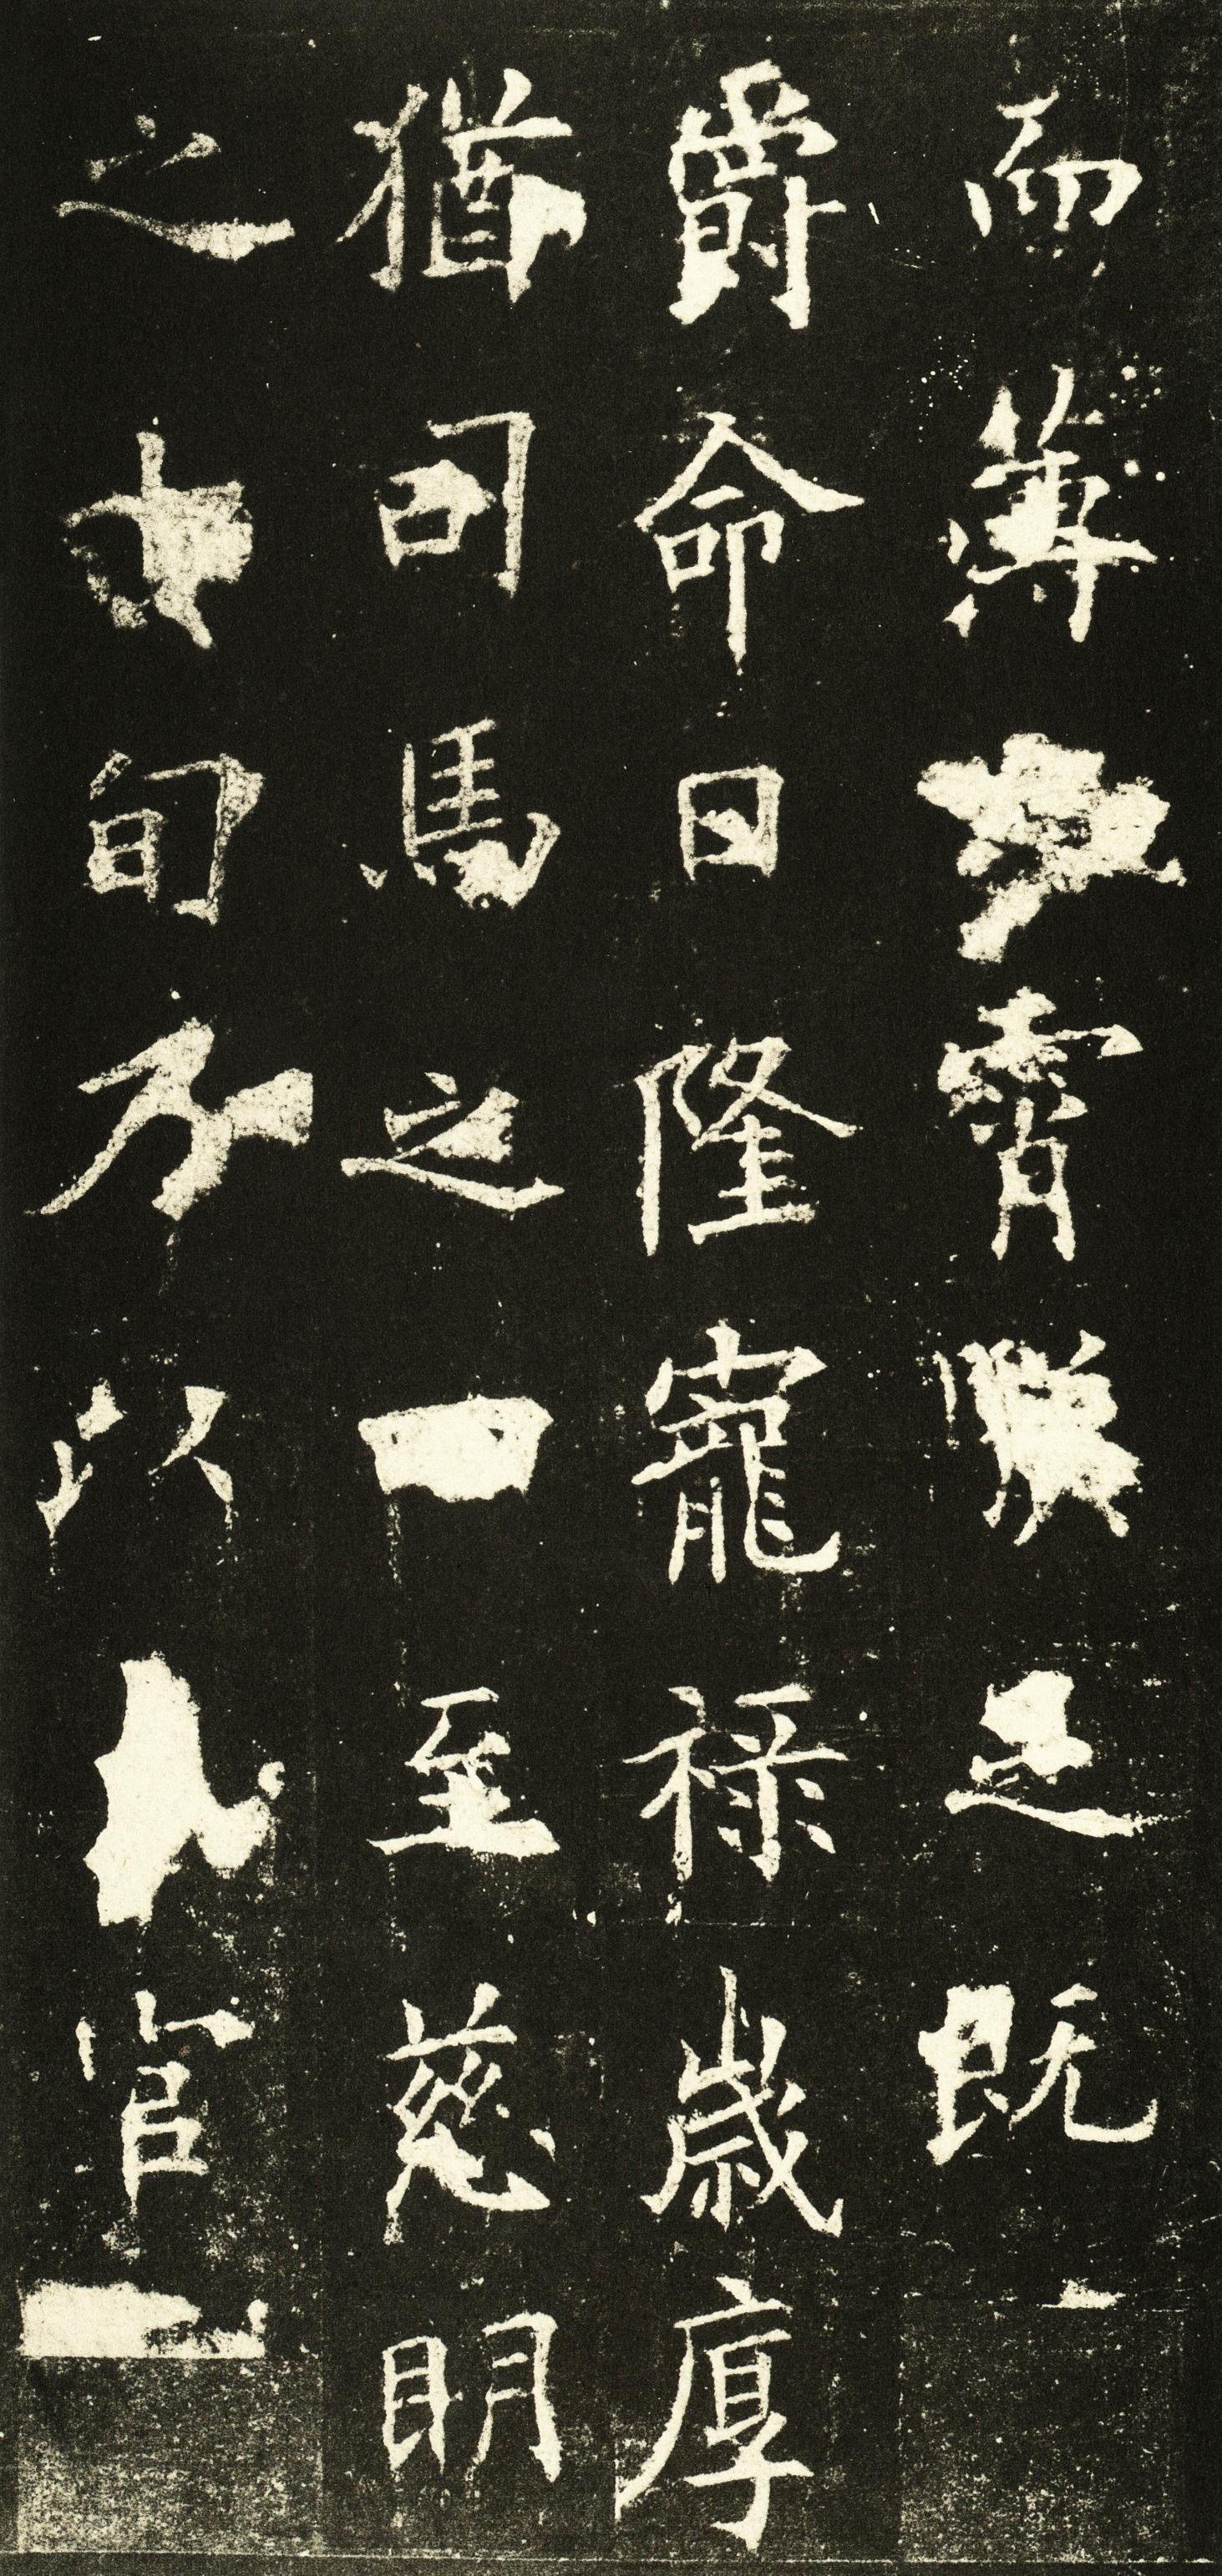 而薄霄之既
爵命日隆寵祿歲厚
猶司馬之至慈明
之旬方以官